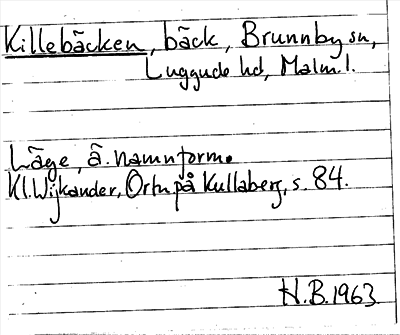 Killebäcken, bäck, Brunnby sn,
Luggude hd, Malm. l.
Läge, ä. namnform.
Kl. Wijkander, Ortn på Kullaberg, s. 84.
H.B. 1963